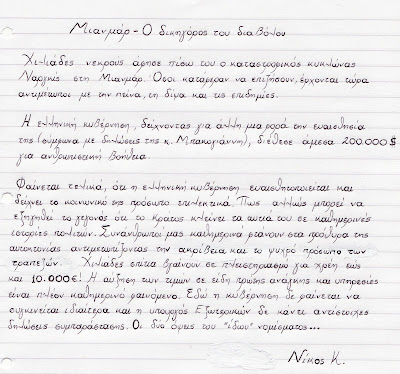 Μιανμάρ - Ο δικηγόρος του διαβόλου
Χιλιάδες νεκρούς άφησε πίσω του ο καταστροφικός κυκλώνας
Ναργκίς στη Μιανμάρ. Όσοι κατάφεραν να επιζήσουν, έρχονται τώρα
αντιμέτωποι με την πείνα, τη δίψα και τις επιδημίες.
Η ελληνική κυβέρνηση, δείχνοντας για άλλη μια φορά την ευαισθησία
της (σύμφωνα με δηλώσεις της κ. Μπακογιάννη), διέθεσε άμεσα 200.000$
για ανθρωπιστική βοήθεια.
Φαίνεται τελικά, ότι η ελληνική κυβέρνηση ευαισθητοποιείται και
δείχνει το κοινωνικό της πρόσωπο επιλεκτικά. Πως αλλιώς μπορεί να
εξηγηθεί το γεγονός ότι το κράτος κλείνει τα αυτιά του σε καθημερινές
ιστορίες πολιτών. Συνάνθρωποί μας καθημερινά φτάνουν στα πρόθυρα της
αυτοκτονίας αντιμετωπίζοντας την ακρίβεια και το ψυχρό πρόσωπο των
τραπεζών. Χιλιάδες σπίτια βγαίνουν σε πλειστηριασμό για χρέη έως
και 10.000€! Η αύξηση των τιμών σε είδη πρώτης ανάγκης και υπηρεσίες
είναι πλέον καθημερινό φαινόμενο. Εδώ η κυβέρνηση δε φαίνεται να
συγκινείται ιδιαίτερα και η υπουργός Εξωτερικών δε κάνει αντίστοιχες
δηλώσεις συμπαράστασης. Οι δύο όψεις του "ίδιου" νομίσματος...
Νίκος Κ.